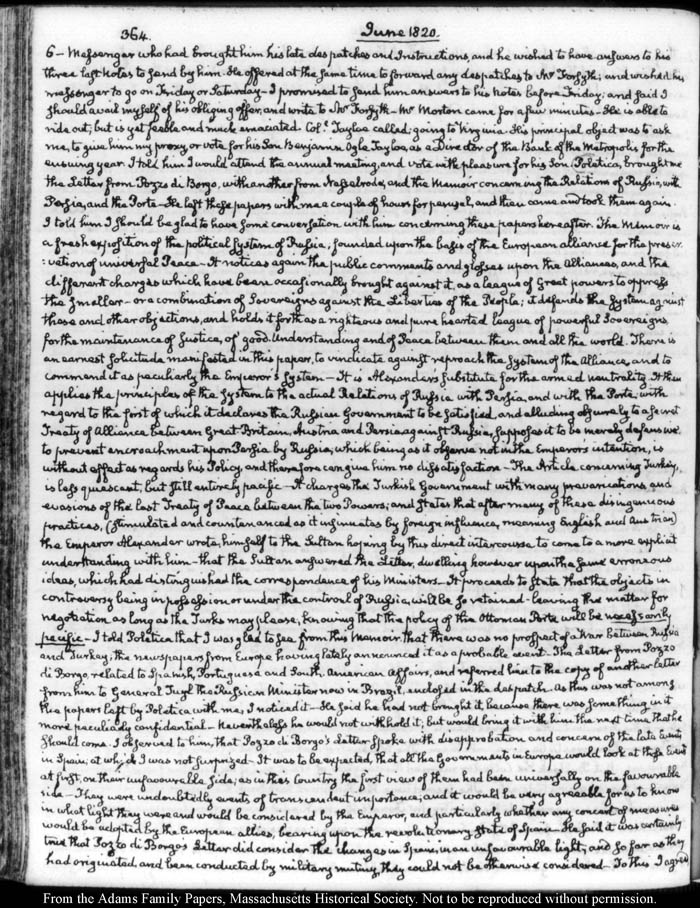 364.
June 1820.
6 – Messenger who had brought him his late despatches and Instructions, and he wished to have answers to his
three last Notes to send by him. He offered at the same time to forward any despatches to Mr Forsyth; and wished his
messenger to go on Friday or Saturday – I promised to send him answers to his Notes before Friday; and said I
should avail myself of his obliging offer, and write to Mr Forsyth – Mr Morton came for a few minutes – He is able to
ride out; but is yet feeble and much emaciated. Coll. Tayloe called; going to Virginia. His principal object was to ask
me, to give him my proxy or vote for his Son Benjamin Ogle Tayloe, as a Director of the Bank of the Metropolis for the
ensuing year. I told him I would attend the annual meeting, and vote with pleasure for his Son. Poletica, brought me
the Letter from Pozzo di Borgo, with another from Nesselrode, and the Memoir concerning the Relations of Russia, with
Persia, and the Porte – He left these papers with me a couple of hours for perusal, and then came and took them again.
I told him I should be glad to have some conversation with him concerning these papers hereafter. The Memoir is
a fresh exposition of the political System of Russia, founded upon the basis of the European alliance for the preser
:vation of universal Peace – It notices again the public comments and glosses upon the Alliances, and the
different charges which have been occasionally brought against it, as a league of Great powers to oppress
the smaller – or a combination of Sovereigns against the Liberties of the People; it defends the System against
these and other objections, and holds it forth as a righteous and pure hearted league of powerful Sovereigns
for the maintenance of Justice, of good Understanding and of Peace between them and all the world. There is
an earnest solicitude manifested in this paper, to vindicate against reproach the System of the Alliance, and to
commend it as peculiarly the Emperor's System – It is Alexanders substitute for the armed neutrality. It then
applies the principles of the System to the actual Relations of Russia with Persia, and with the Porte; with
regard to the first of which it declares the Russian Government to be satisfied, and alluding obscurely to a secret
Treaty of Alliance between Great Britain, Austria and Persia against Russia, supposes it to be merely defensive
to prevent encroachment upon Persia by Russia, which being as it observes not in the Emperor's intention, is
without effect as regards his Policy, and therefore can give him no dissatisfaction – The Article concerning Turkey,
is less quiescent, but still entirely pacific – It charges the Turkish Government with many prevarications, and
evasions of the last Treaty of Peace between the two Powers; and states that after many of these disingenuous
practices, (stimulated and countenanced as it insinuates by foreign influence, meaning English and Austrian)
the Emperor Alexander wrote, himself to the Sultan hoping by this direct intercourse to come to a more explicit
understanding with him – that the Sultan answered the Letter, dwelling however upon the same erroneous
ideas, which had distinguished the correspondence of his Ministers – It proceeds to state that the objects in
controversy being in possession or under the controul of Russia, will be so retained – leaving the matter for
negotiation as long as the Turks may please, knowing that the policy of the Ottoman Porte will be necessarily
pacific – I told Poletica that I was glad to see from this Memoir that there was no prospect of a War between Russia
and Turkey; the newspapers from Europe having lately announced it as a probable event. The Letter from Pozzo
di Borgo, related to Spanish, Portuguese and South American Affairs, and referred him to the copy of another letter
from him to General Tuyl the Russian Minister now in Brazil, enclosed in the despatch. As this was not among
the papers left by Poletica with me, I noticed it – He said he had not brought it, because there was something in it
more peculiarly confidential – Nevertheless he would not withhold it; but would bring it with him the next time that he
should come. I observed to him, that Pozzo di Borgo's Letter spoke with disapprobation and concern of the late Events
in Spain, at which I was not surprized – It was to be expected, that all the Governments in Europe would look at these Events
at first, on their unfavourable side; as in this Country the first view of them had been universally on the favourable
side – They were undoubtedly events of transcendent importance; and it would be very agreeable for us to know
in what light they were and would be considered by the Emperor, and particularly whether any concert of measures
would be adopted by the European allies, bearing upon the revolutionary State of Spain. He said it was certainly
true that Pozzo di Borgo's Letter did consider the changes in Spain, in an unfavourable light, and so far as they
had originated, and been conducted by military mutiny, they could not be otherwise considered – To this I agreed
From the Adams Family Papers, Massachusetts Historical Society. Not to be reproduced without permission.